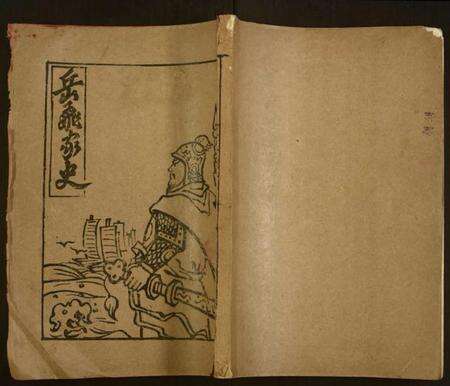 岳飛家史